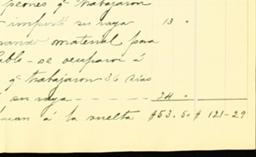 peones q' trabajaron
importó su raya 13 "
material para
se ocuparon á
q' trabajaron 36 días
su raya - - - - 24 "
á la vuelta $53.50 $ 123-29